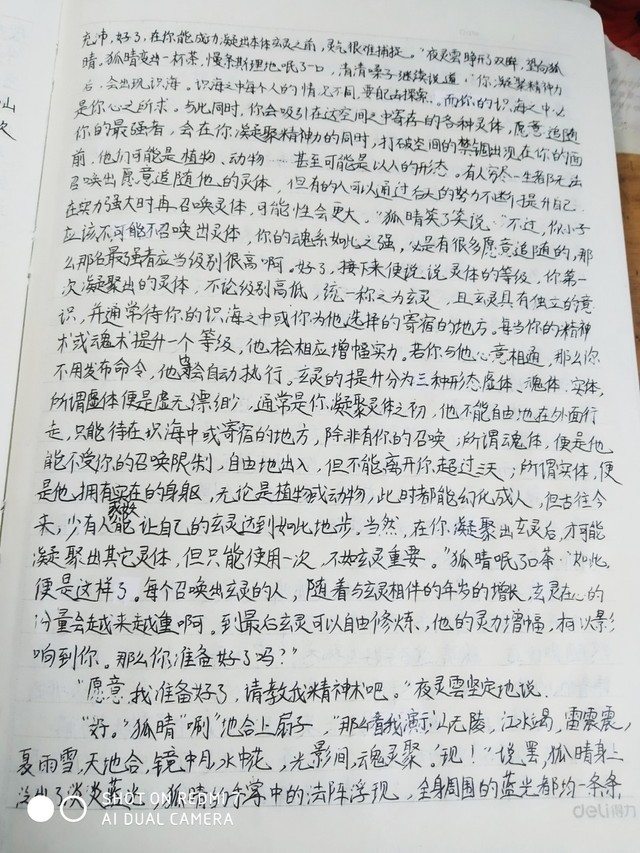 充沛,好了,在你成功凝出本体玄灵之前,灵气很难捕捉。"夜灵雲睁开双眸,望向狐
晴。狐晴变出一杯茶,慢条斯理地呡了一口,清清嗓子继续说道:"你凝聚精神力
后,会出现识海。识海之中每个人的情况不同,要自己去探索。而你的识海之中必
是你心之所求。与此同时,你会吸引在这空间之中寄存的各种灵体,愿意追随
你的最强者,会在你凝聚精神力的同时,打破空间的禁锢出现在你的面
前,他们可能是植物、动物……甚至可能是以人的形态。有人穷尽一生都无法
召唤出愿意追随他的灵体,但有的人可以通过后天的努力不断提升自己,
在实力强大时再召唤灵体,可能性会更大。"狐晴笑了笑说:"不过,你小子
应该不可能不召唤出灵体,你的魂系如此之强,必是有很多愿意追随的,那
么那名最强者应当级别很高啊。好了,接下来便说说灵体的等级,你第一
次凝聚出的灵体,不论级别高低,统一称之为玄灵,且玄灵具有独立的意
识,并通常待你的识海之中或你为他选择的寄宿的地方。每当你的精神
术或魂术提升一个等级,他会相应增幅实力。若你与他心意相通,那么你
不用发布命令,他也会自动执行。玄灵的提升分为三种形态虚体、魂体、实体,
所谓虚体便是虚无缥缈,通常是你凝聚灵体之初,他不能自由地在外面行
走,只能待在识海中或寄宿的地方,除非有你的召唤;所谓魂体,便是他
能不受你的召唤限制,自由地出入,但不能离开你超过三天;所谓实体,便
是他拥有实在的身躯,无论是植物或动物,此时都能幻化成人,但古往今
来,少有人能够让自己的玄灵达到如此地步。当然,在你凝聚出玄灵后,才可能
凝聚出其它灵体,但只能使用一次,不如玄灵重要。"狐晴呡了口茶:"如此,
便是这样了。每个召唤出玄灵的人,随着与玄灵相伴的年岁的增长,玄灵在心的
份量会越来越重啊。到最后玄灵可以自由修炼,他的灵力增幅,可以影
响到你。那么你准备好了吗?"
"愿意,我准备好了,请教我精神术吧。"夜灵雲坚定地说。
"好。"狐晴"唰"地合上扇子,"那么看我演示:山无陵,江水竭,雷震震,
夏雨雪,天地合,镜中月,水中花,光影间,魂灵聚。现!"说罢,狐晴身上
泛出了淡淡蓝光,狐晴的手掌中的法阵浮现,全身周围的蓝光都均一条条
SHOT ON REDMI 7
AI DUAL CAMERA
deli得力